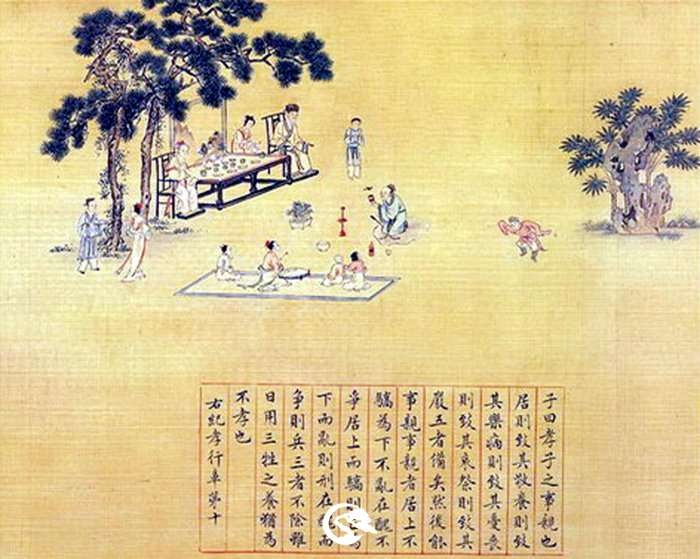 子曰孝子之事親也
居則致其敬養則致
其樂病則致其憂喪
則致其哀祭則致其
嚴五者備矣然後能
事親事親者居上不
驕為下不亂在醜不
爭居上而驕則為
下而亂則刑在而
爭則兵三者不除雖
日用三牲之養猶為
不孝也
右紀孝行章第十